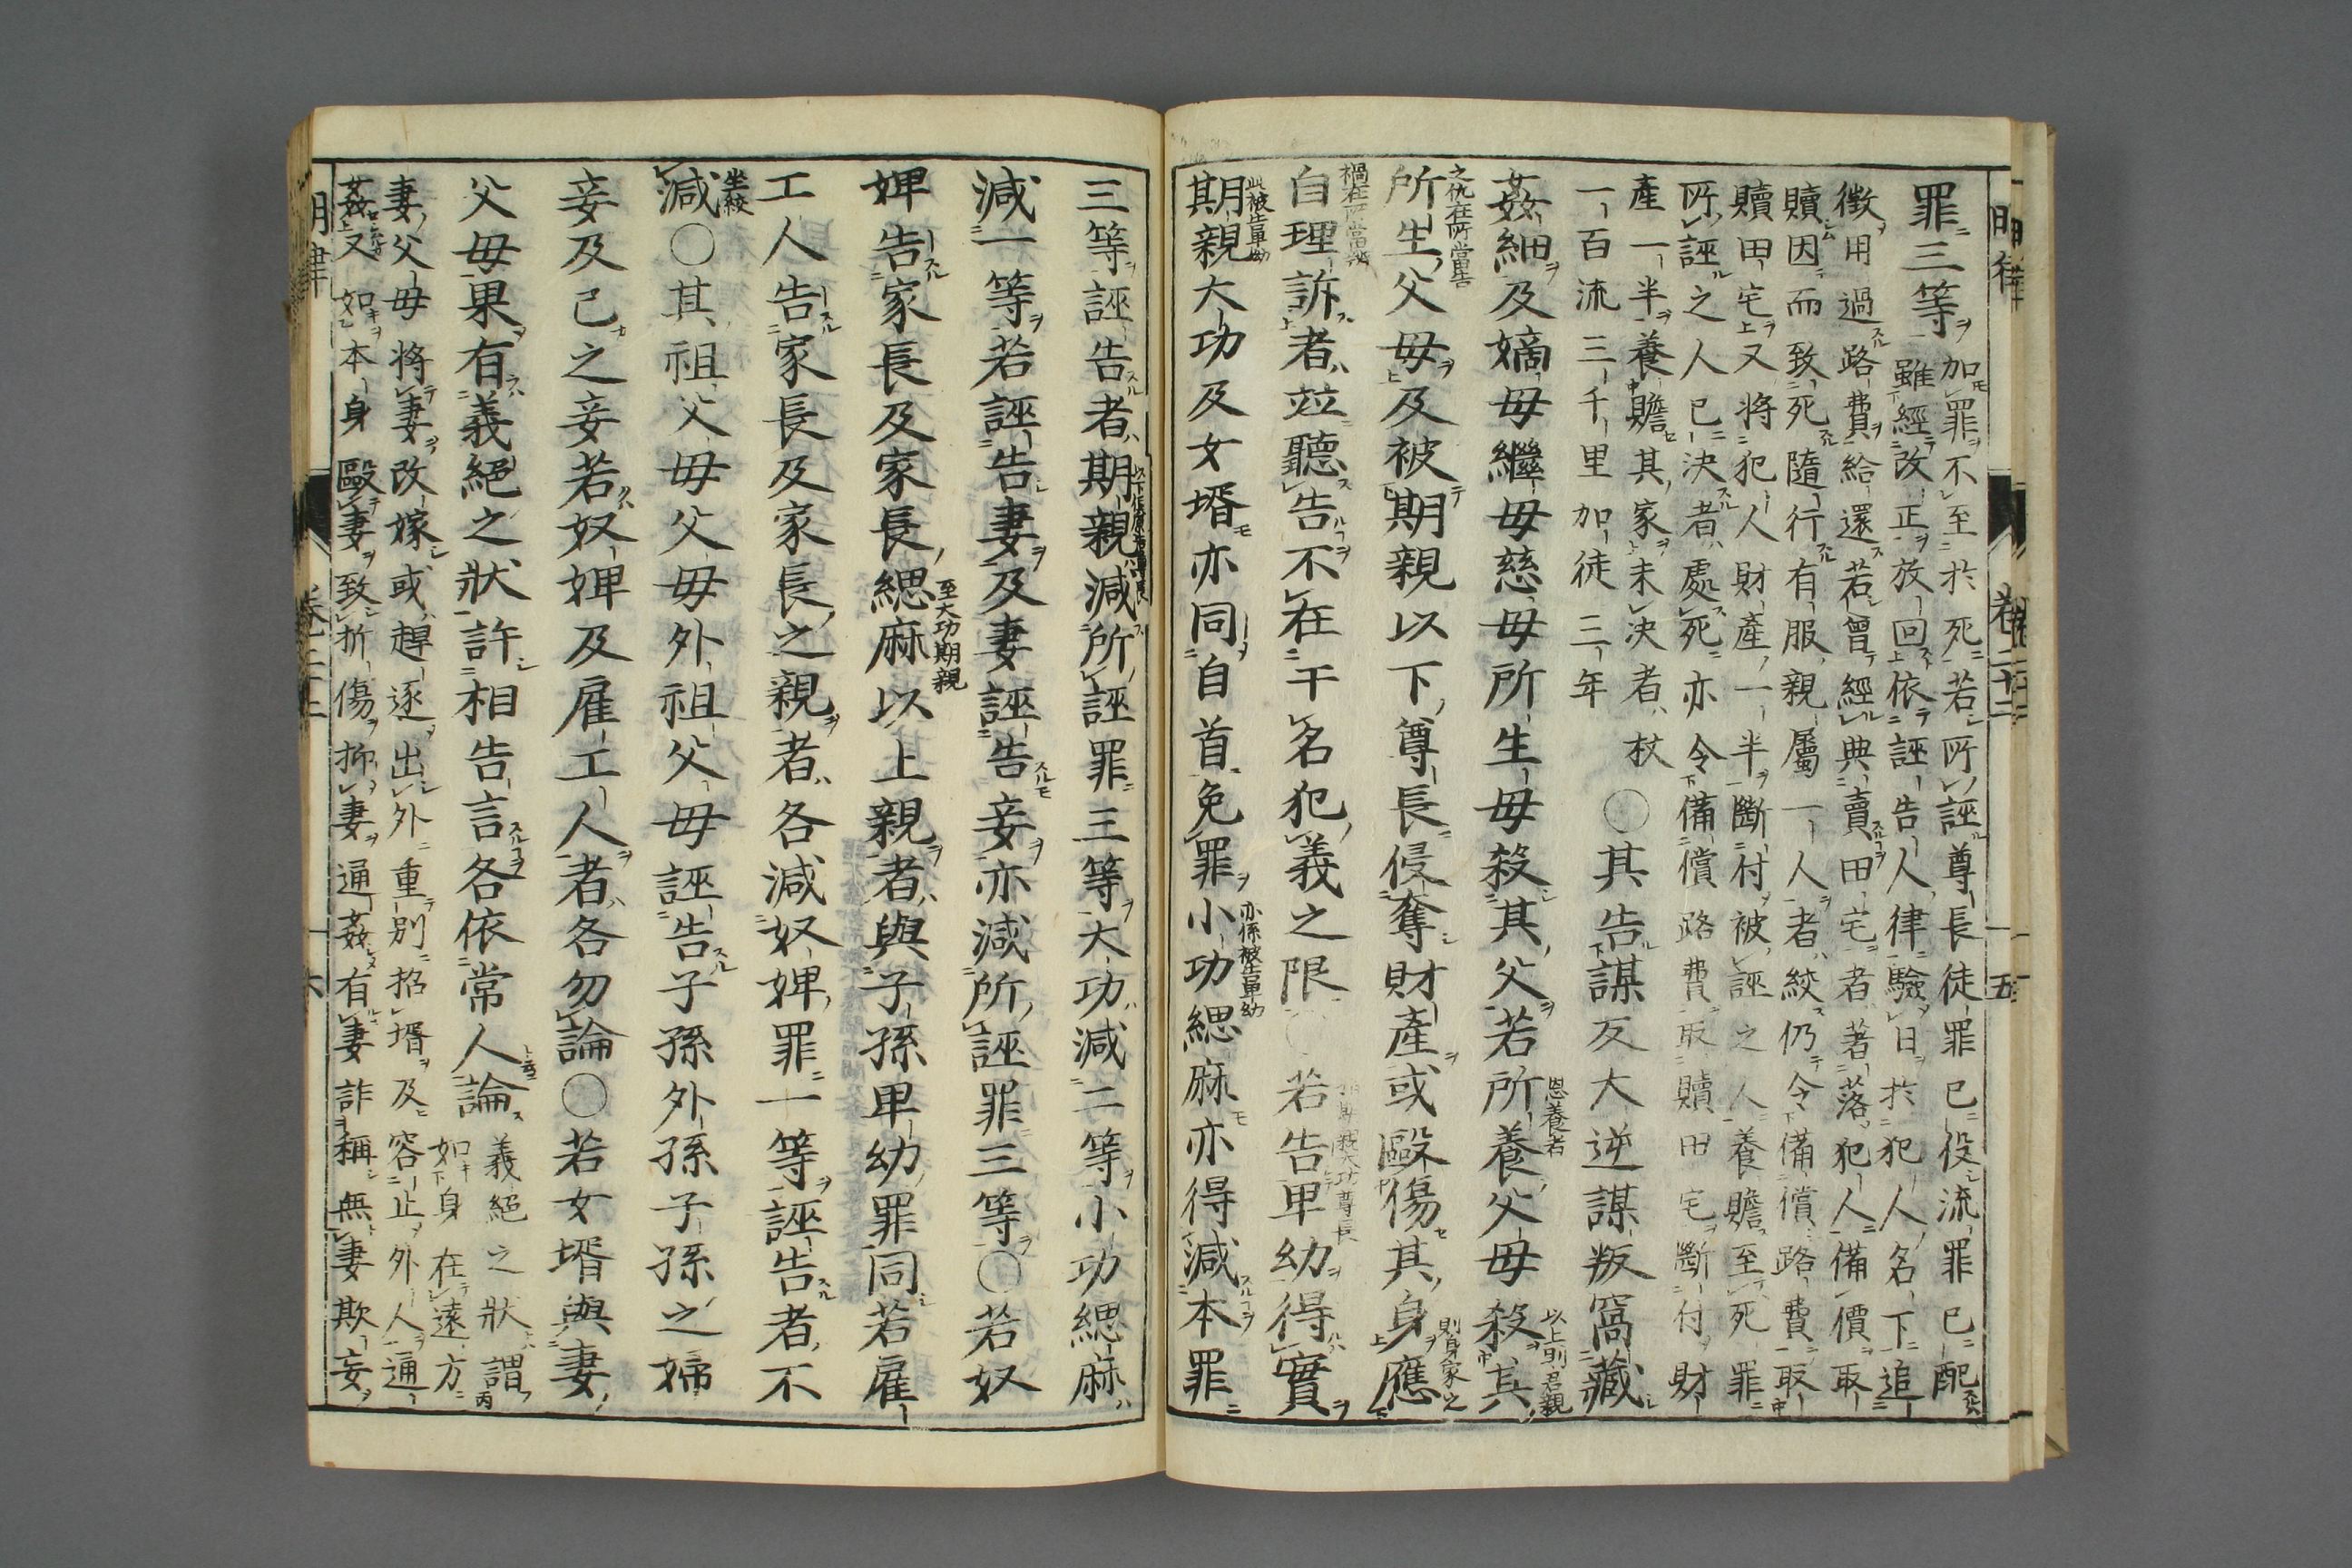 罪三等加罪不至於死若所誣尊長徒罪已役流罪已配
雖經改正放回依誣告人律驗日於犯人名下追
徵用過路費給還若曾經典賣田宅者著落犯人備價取
贖因而致死隨行有服親屬一人者絞仍令備償路費取
贖田宅又將犯人財產一半斷付被誣之人養贍至死罪
所誣之人已決者處死亦令備償路費取贖田宅斷付財
產一半養贍其家未決者杖
一百流三千里加徒三年
○其告謀反大逆謀叛窩藏
姦細及嫡母繼母慈母所生母殺其父若所養父母殺其
恩養者
以上則君親
之仇在所當告
所生父母及被期親以下尊長侵奪財產或毆傷其身應
則身家之
禍在所當訴
自理訴者並聽告不在干名犯義之限 若告卑幼得實
此被告卑幼
期親大功及女壻亦同自首免罪小功緦麻亦得減本罪
亦係被告卑幼
三等誣告者期親減所誣罪三等大功減二等小功緦麻
減一等若誣告妻及妻誣告妾亦減所誣罪三等○若奴
婢告家長及家長緦麻以上親者與子孫卑幼罪同若雇
至大功期親
工人告家長及家長之親者各減奴婢罪一等誣告者不
坐絞
減○其祖父母父母外祖父母誣告子孫外孫子孫之婦
妾及己之妾若奴婢及雇工人者各勿論○若女壻與妻
父母果有義絕之狀許相告言各依常人論
義絕之狀謂
如身在遠方
妻父母將妻改嫁或趕逐出外重別招壻及容止外人通
姦又如本身毆妻致折傷抑妻通姦有妻詐稱無妻欺妄
明律
卷二十二
五
六